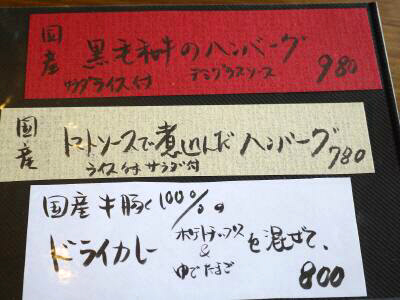 国産 黒毛和牛のハンバーグ
サラダライス付 デミグラスソース 980
国産 トマトソースで煮込んだハンバーグ
ライス付 サラダ付 780
国産牛豚100%の
ドライカレー ポテトチップス & ゆでたまご を混ぜて、
800